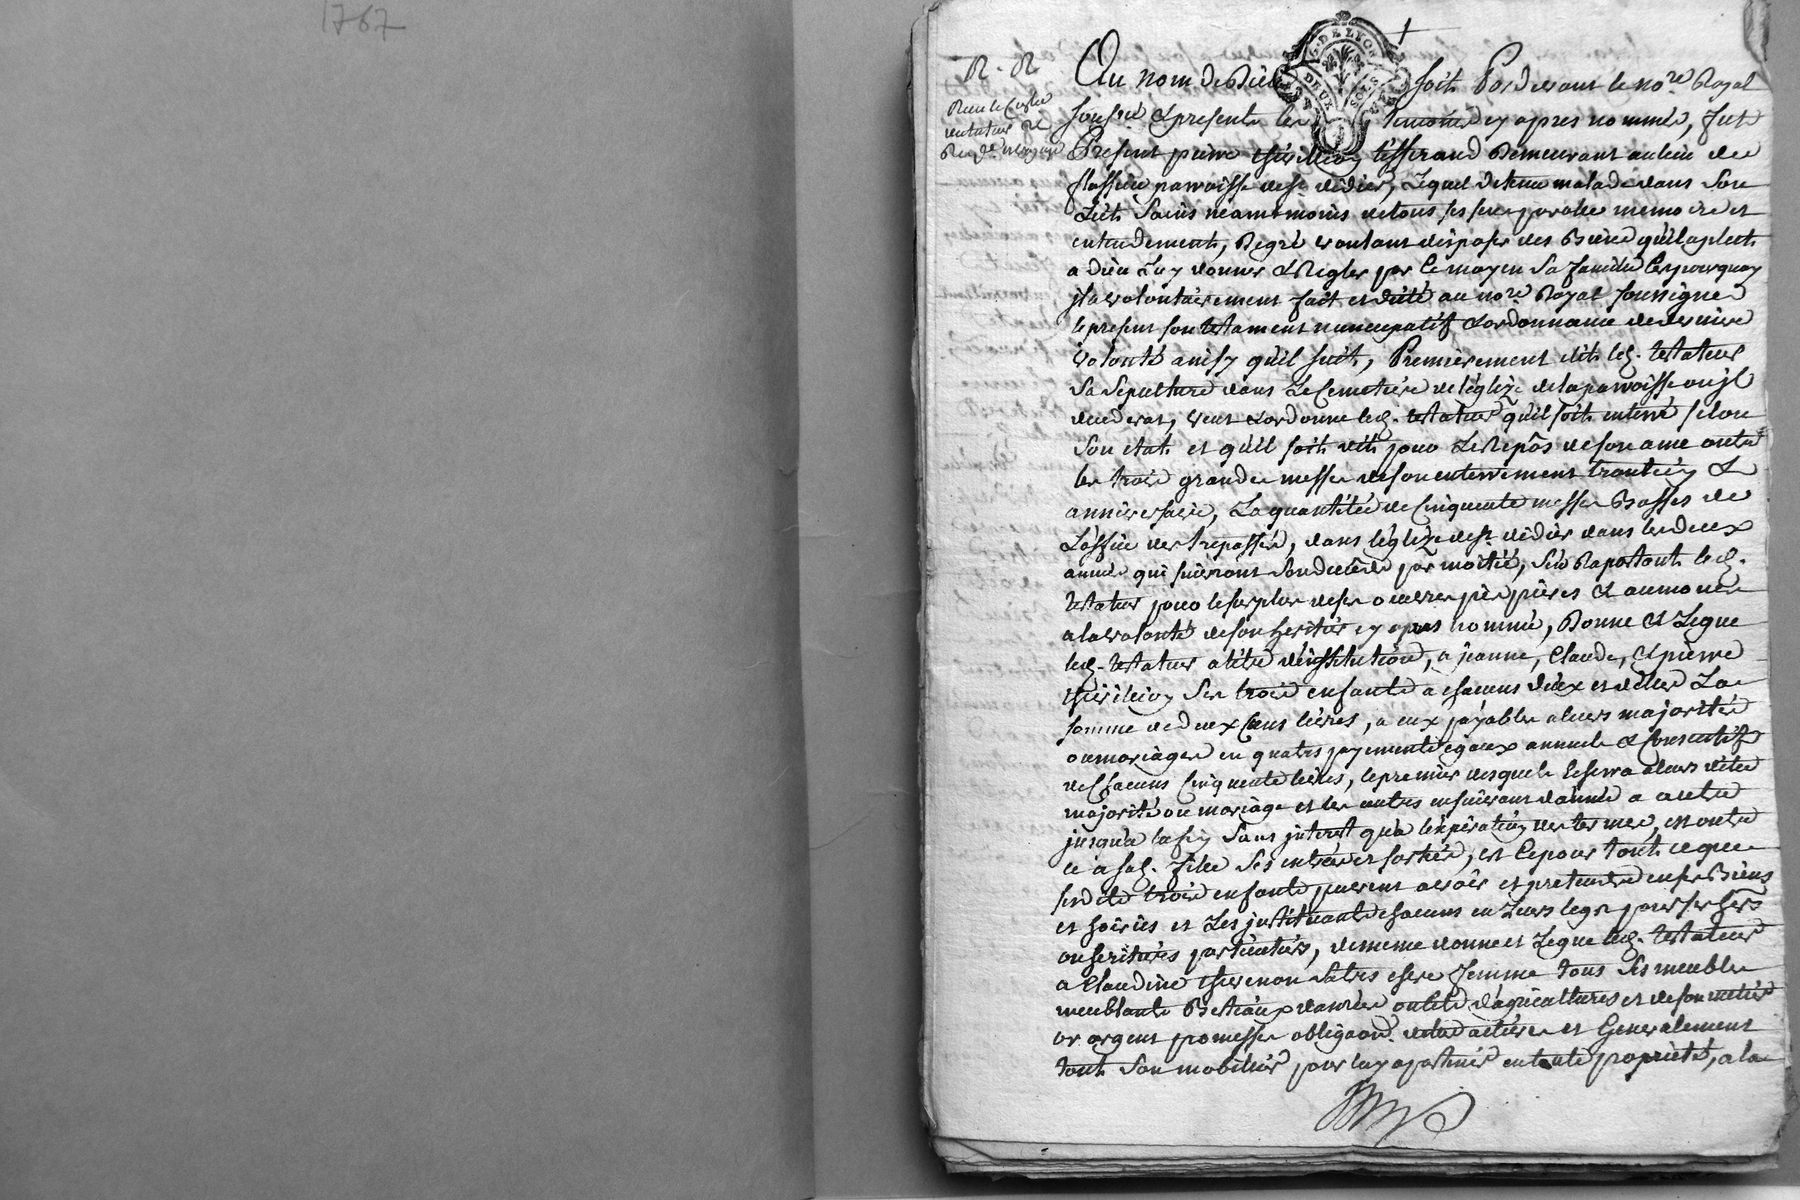 1767
R. R.
Au nom de Dieu soit Pardevant le no.re Royal
G. DE LYON
DEUX SOLS
sous.né & presents les temoins cy apres nommés, fut
Present pierre tisserand Demeurant au lieu de
paroisse de st. didier, Lequel detenu malade dans son
Lict sains neamtmoins de tous ses sens parolle memoire et
entendement, Degré voulant disposer des Biens qu'il a plut
a dieu Luy donner & Regler par ce moyen sa famille C'est pourquoy
jl a volontairement fait et dicté au no.re Royal soussigné
le present son testament nuncupatif & ordonnance de derniere
volonté ainsy qu'il suit, Premierement élit led. testateur
Sa Sepulture dans Le Cemetiere de l'églize de la paroisse ou jl
decedera, veut & ordonne led. testateur qu'il soit enterré selon
Son etat et qu'il soit dit pour Le Repôs de son ame outre
les trois grandes messes de son enterrement &
anniversaire, La quantitée de Cinquante messes Basses de
L'office des trepassés, dans l'églize de st. didier dans les deux
année qui suivront son decéds par moitié, s'en Raportant led.
testateur pour le surplus de ses oeuvres pies prières & aumones
a la volonté de son heritier cy apres nommé, Donne & Legue
led. testateur a titre d'institution, a jeanne, Claude, & pierre
ses trois enfants a chacuns d'eux et d'elles La
somme de deux Cens livres, a eux payable a leurs majorités
ou mariages en quatres payements égaux annuels & consecutifs
de Chacuns Cinquante livres, le premier desquels se fera a leurs dites
majorité ou mariage et les autres en suivant d'année a autre
jusqu'a la fin sans interest qu'a l'expiration des termes, et outre
ce a sad. fille ses entrée et sorties, et ce pour tout ce que
sesdits trois enfants peuvent avoir et pretendre en ses Biens
et et Les jnstituants chacuns en Leurs legs pour ses
ou heritiers particuliers, de meme donne et Legue led. testateur
a Claudine sa tres chere femme tous ses meubles
meublants Bestiaux danrées outils d'agricultures et de son metier
or argent promesse obligaon. et Generalement
tout Son mobilier, pour luy apartenir en toute propriété, a la